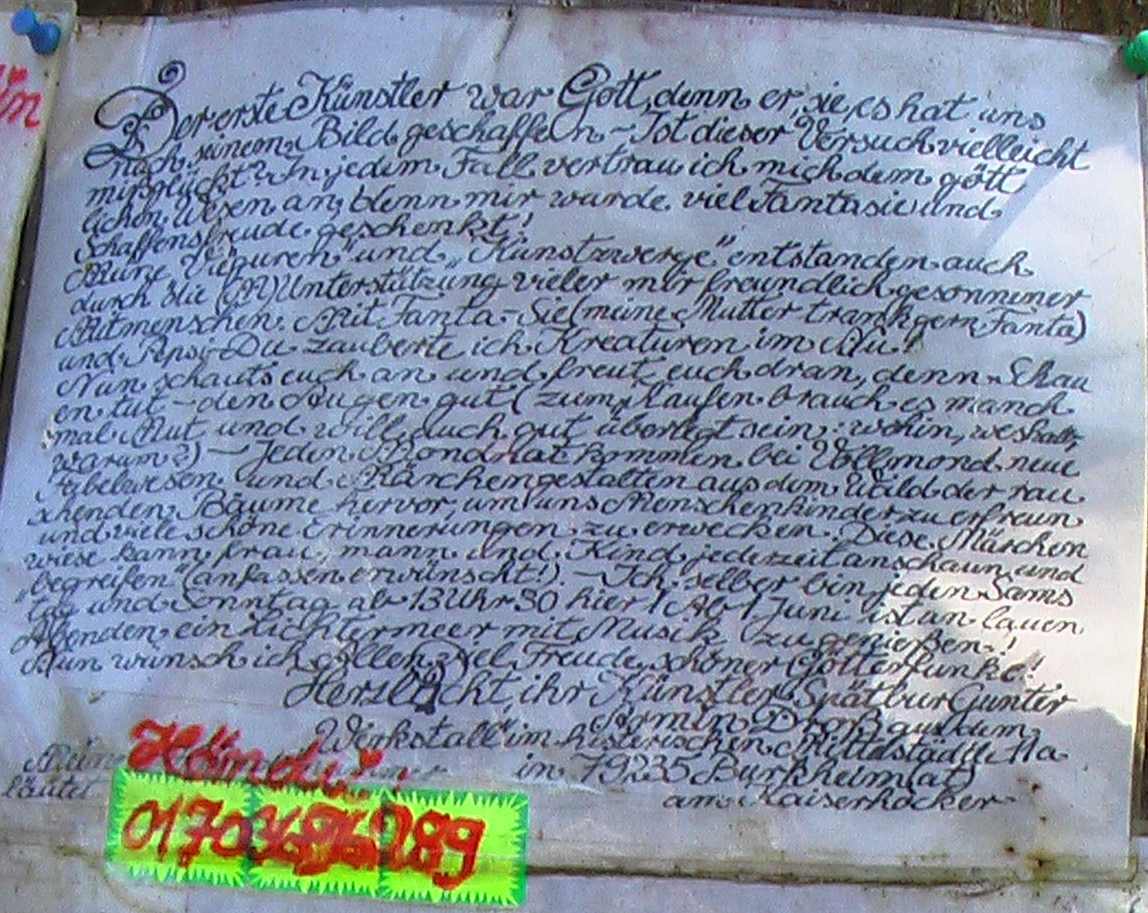 Der erste Künstler war Gott, denn er, sie, es hat uns
nach seinem Bild geschaffen – Ist dieser Versuch vielleicht
mißglückt? In jedem Fall vertrau ich mich dem gött
lichen Wesen an, denn mir wurde viel Fantasie und
Schaffensfreude geschenkt!
Meine "Viguren" und „Kunstzwerge" entstanden auch
durch die Unterstützung vieler mir freundlich gesonnener
Mitmenschen. Mit Fanta-Sie (meine Mutter trank gern Fanta)
und Pepsi-Du zauberte ich Kreaturen im Nu!
Nun schauts euch an und freut euch dran, denn Schau
en tut – den Augen gut (zum Kaufen brauch es manch
mal Mut und will auch gut überlegt sein: wohin, weshalb,
warum?) – Jeden Mondnat kommen bei Vollmond neue
Fabelwesen und Märchengestalten aus dem Wald der rau
schenden Bäume hervor, um uns Menschenkinder zu erfreun
und viele schöne Erinnerungen zu erwecken. Diese Märchen
wiese kann frau, mann und Kind jederzeit anschaun und
„begreifen" (anfassen erwünscht!). – Ich selber bin jeden Sams
tag und Sonntag ab 13 Uhr 30 hier! Ab 1 Juni ist an lauen
Abenden ein Lichtermeer mit Musik zu genießen!
Nun wünsch ich Allen viel Freude schöner Götterfunke!!
Herzlacht, ihr Künstler Spätbur Gunter
Armin Droß aus dem
Werkstall im historischen Mittelstädtle Na
in 79235 Burkheim(at)
am Kaiserhocker
Mein Händui
läutet 01703696289